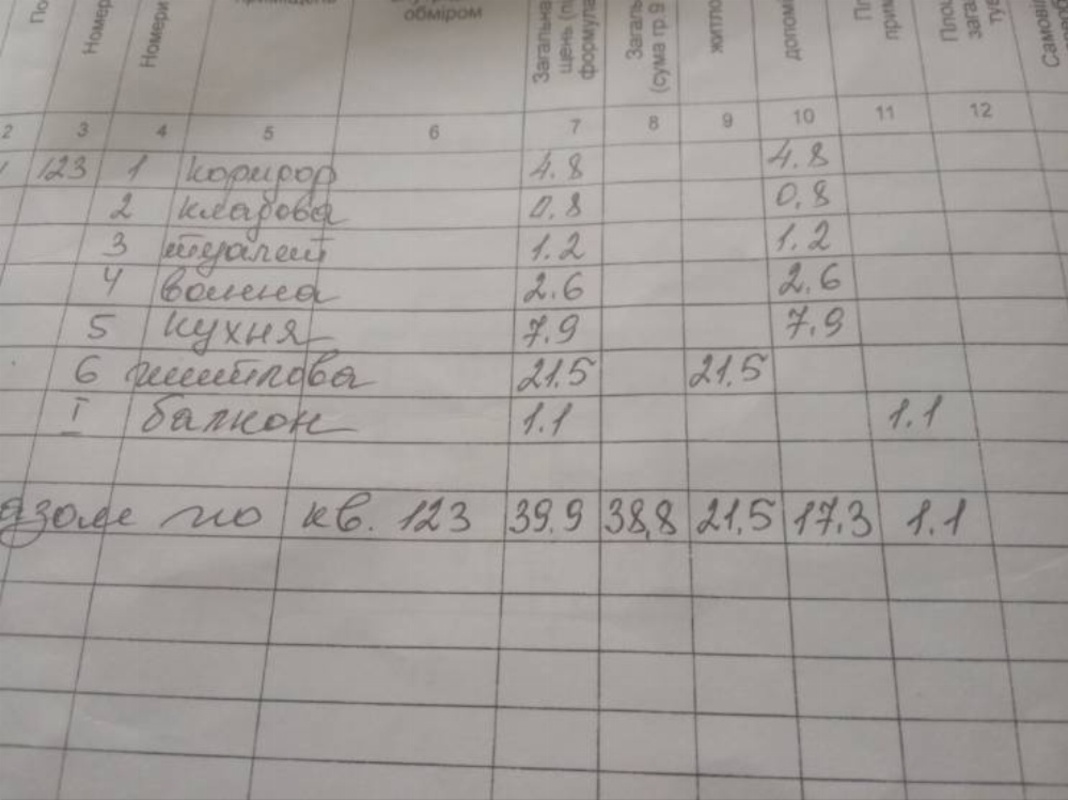 обміром
Загальна
формула
Загаль
(сума гр.9
житло
допомі
Номер
Номери
По
Самові
2 3 4 5 6 7 8 9 10 11 12
123 1 коридор 4.8 4.8
2 кладова 0,8 0,8
3 туалет 1.2 1.2
4 ванна 2.6 2.6
5 кухня 7.9 7.9
6 житлова 21.5 21.5
I балкон 1.1 1.1
азом по кв. 123 39.9 38,8 21,5 17.3 1.1